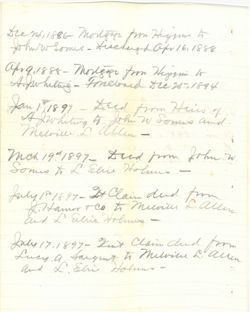 Dec 24, 1886 - Mortgage from Higgins to
John W Somes - Discharged Apr 16, 1888
Apr 9, 1888 - Mortgage from Higgins to
Whiting - Foreclosed Dec 25, 1894
Jan 1st 1897 - Deed from Heirs of
Whiting to John W Somes and
Melville L Allen -
Mch 19th 1897 - Deed from John W
Somes to L Elrie Holmes -
July 1st 1897 - Qt Claim deed from
Hamor & Co to Melville L Allen
and L Elrie Holmes -
July 17, 1897 - Quit Claim deed from
Lucy A Sargent to Melville L Allen
and L. Elrie Holmes -